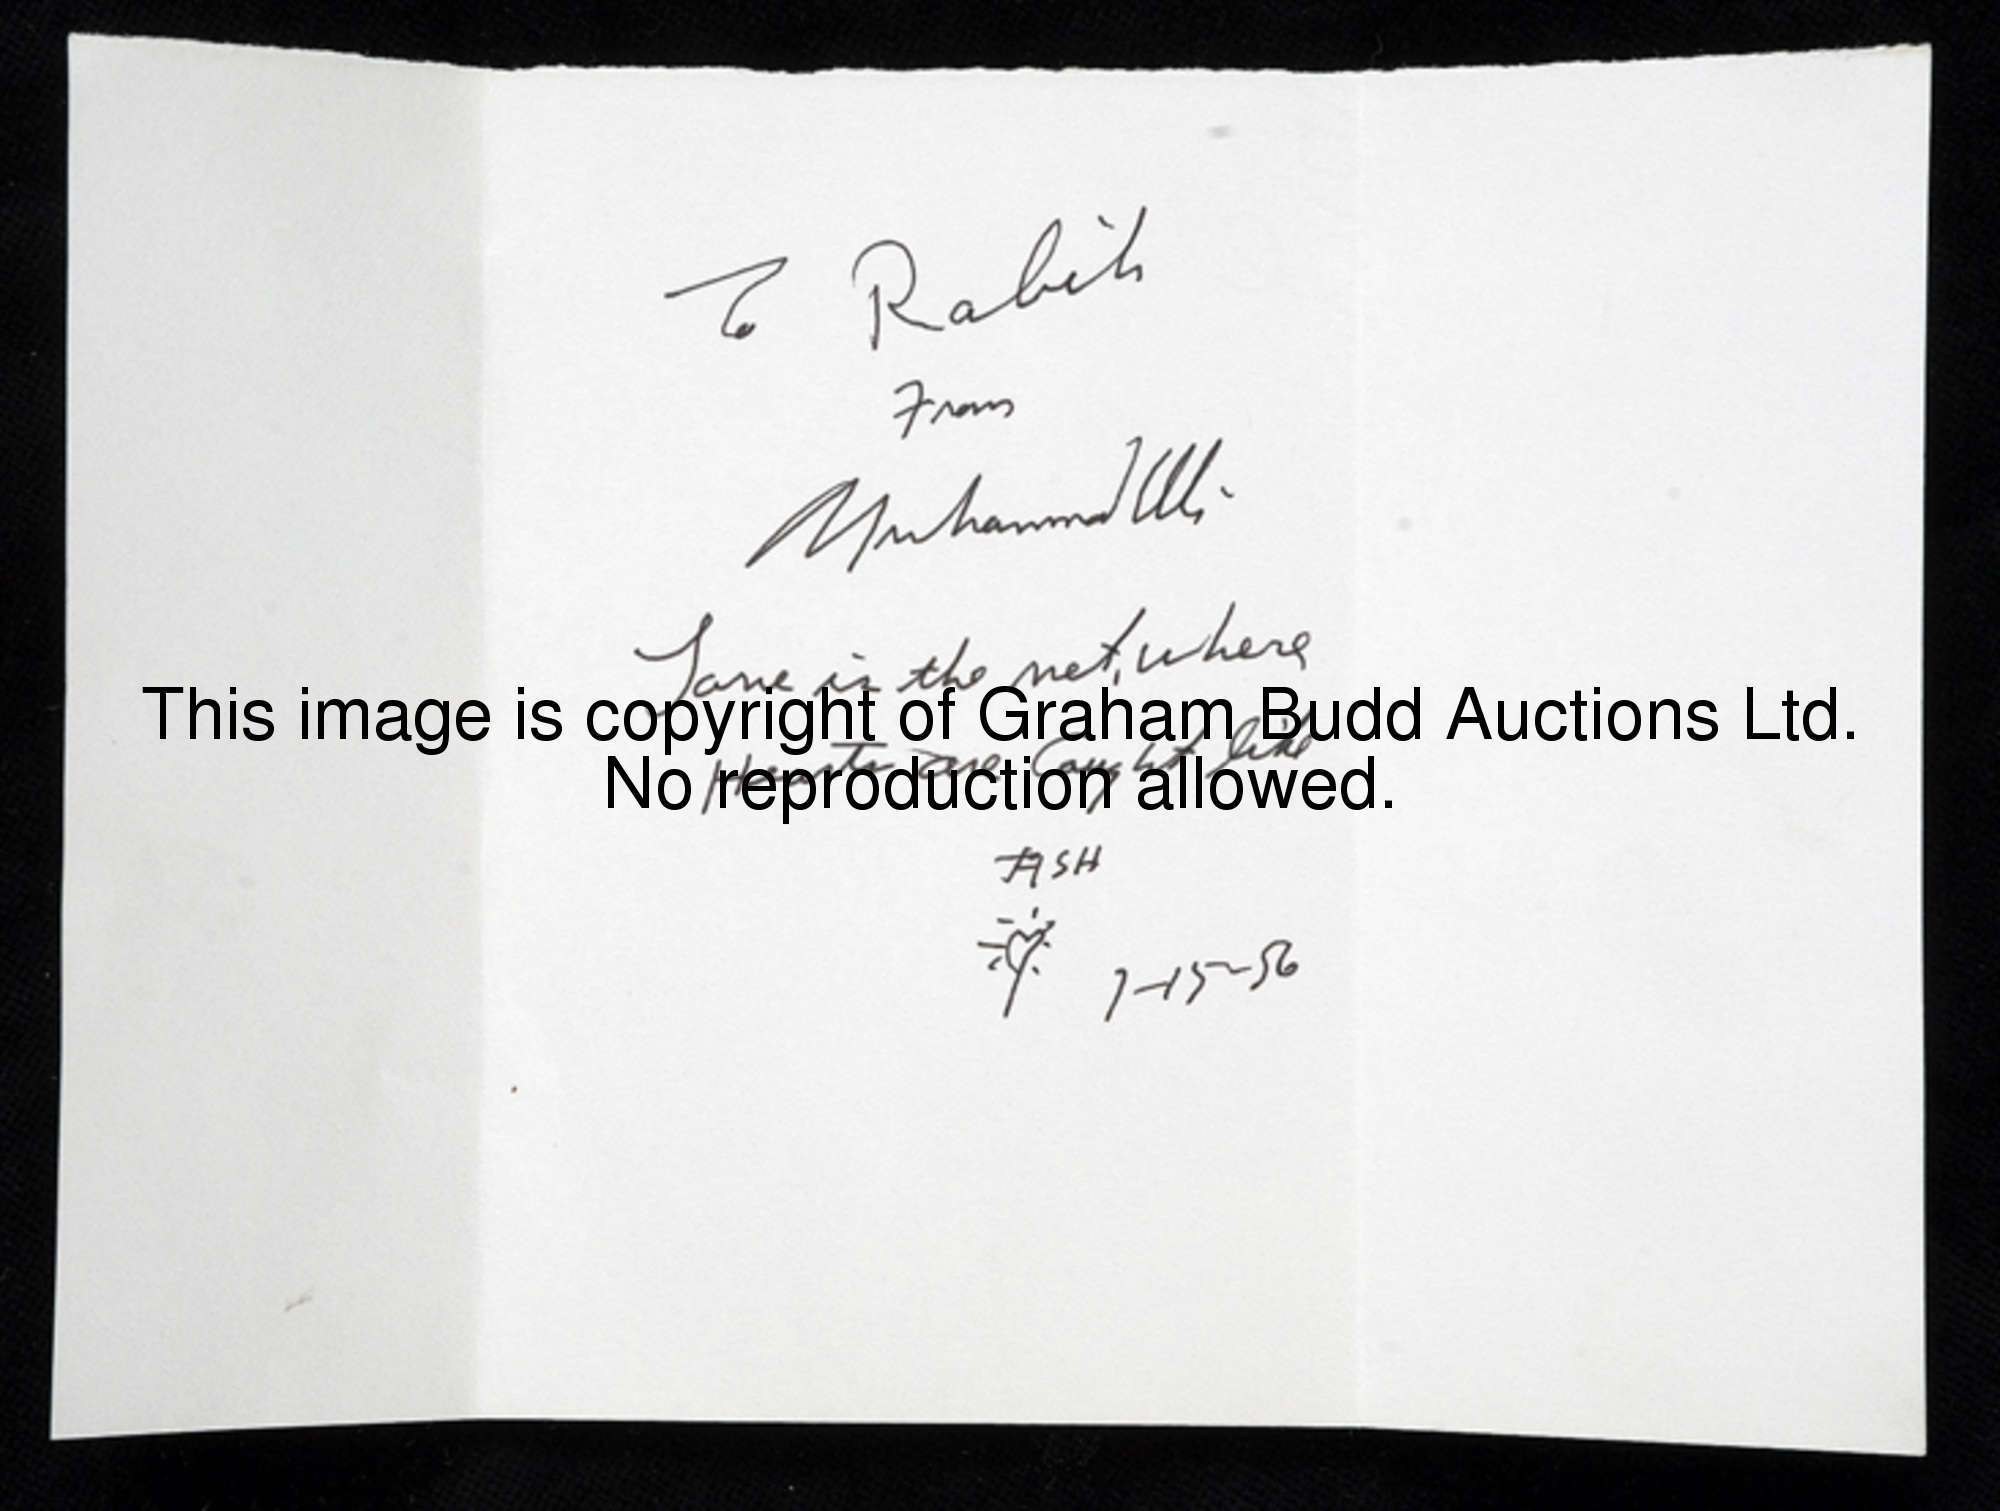 To Rabih
From
Muhammad Ali
Love is the net, where
This image is copyright of Graham Budd Auctions Ltd.
Hearts are Caught like
No reproduction allowed.
FISH
7-15-86